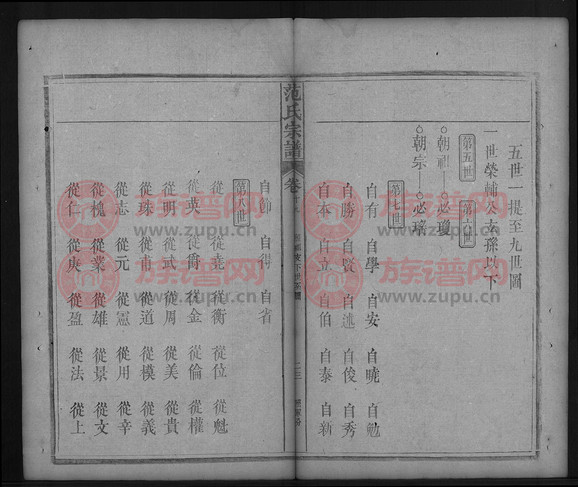 五世一提至九世圖
一世榮輔公玄孫以下
第五世 第六世
朝祖 必瓊
朝宗 必瑞
第七世
自有 自學 自安 自曉 自勉
自勝 自賢 自述 自俊 自秀
自本 自立 自伯 自泰 自新
范氏宗譜 卷
自帥 自得 自省
第八世
從堯 從衡 從位 從魁
從英 從爵 從金 從倫 從權
從明 從武 從周 從美 從貴
從珠 從甫 從道 從模 從義
從志 從元 從憲 從用 從幸
從槐 從業 從雄 從景 從文
從仁 從庚 從盈 從法 從上
族谱网
www.zupu.cn
族谱网
www.zupu.cn
族谱网
www.zupu.cn
族谱网
www.zupu.cn